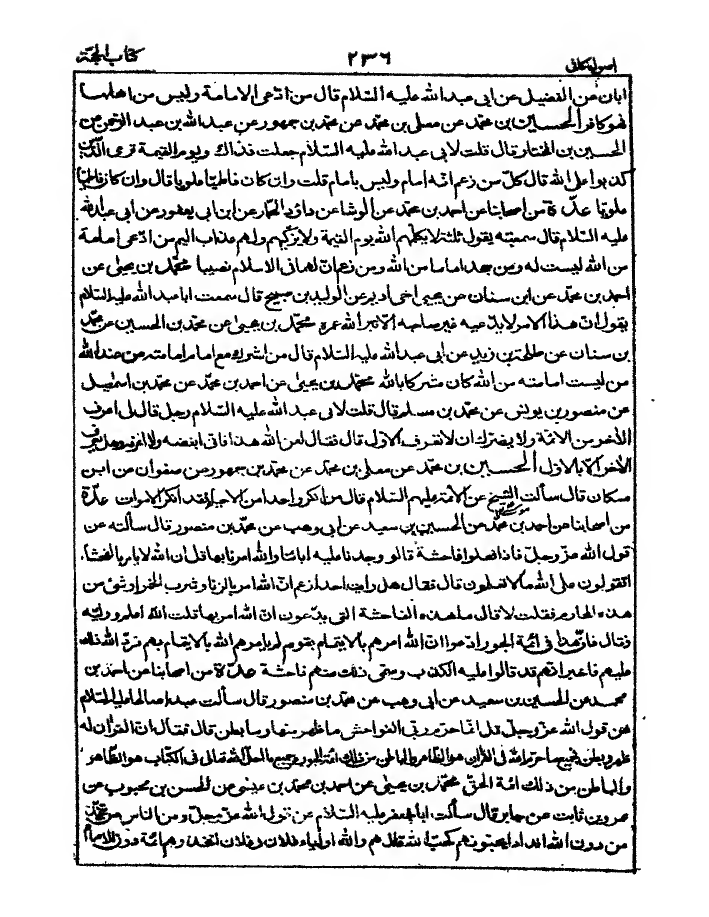 اصول كافى ٢٣٦ كتاب الحجة
ابان عن الفضيل عن ابى عبد الله عليه السلام قال من ادعى الامامة وليس من اهلها
فهو كافر الحسين بن محمد عن معلى بن محمد عن محمد بن جمهور عن عبد الله بن عبد الرحمن عن
الحسين بن المختار قال قلت لابى عبد الله عليه السلام جعلت فداك ويوم القيمة ترى الذين
كذبوا على الله قال كل من زعم انه امام وليس بامام قلت وان كان فاطميا علويا قال وان كان فاطميا
علويا عدة من اصحابنا عن احمد بن محمد عن الوشا عن داود الحمار عن ابن ابى يعفور عن ابى عبد الله
عليه السلام قال سمعته يقول ثلثة لا يكلمهم الله يوم القيمة ولا يزكيهم ولهم عذاب اليم من ادعى امامة
من الله ليست له ومن جحد اماما من الله ومن زعم ان لهما فى الاسلام نصيبا محمد بن يحيى عن
احمد بن محمد عن ابن سنان عن يحيى اخى اديم عن الوليد بن صبيح قال سمعت ابا عبد الله عليه السلام
يقول ان هذا الامر لا يدعيه غير صاحبه الا تبر الله عمره محمد بن يحيى عن محمد بن الحسين عن محمد
بن سنان عن طلحة بن زيد عن ابى عبد الله عليه السلام قال من اشرك مع امام امامته من عند الله
من ليست امامته من الله كان مشركا بالله محمد بن يحيى عن احمد بن محمد عن محمد بن اسمعيل
عن منصور بن يونس عن محمد بن مسلم قال قلت لابى عبد الله عليه السلام رجل قال لى اعرف
الاخر من الائمة ولا يضرك ان لا تعرف الاول قال فقال لعن الله هذا فانى ابغضه ولا اعرفه وهل عرف
الاخر الا بالاول الحسين بن محمد عن معلى بن محمد عن محمد بن جمهور عن صفوان عن ابن
مسكان قال سألت الشيخ عن الائمة عليهم السلام قال من انكر واحدا من الاحياء فقد انكر الاموات عدة
من اصحابنا عن احمد بن محمد عن الحسين بن سعيد عن ابى وهب عن محمد بن منصور قال سألته عن
قول الله عز وجل فاذا فعلوا فاحشة قالو وجدنا عليه ابائنا والله امرنا بها قل ان الله لا يامر بالفحشاء
اتقولون على الله ما لا تعلمون قال فقال هل رايت احدا زعم ان الله امر بالزنا وشرب الخمر او شئ من
هذه المحارم فقلت لا قال ما هذه الفاحشة التى يدعون ان الله امر بها قلت الله اعلم ووليه
فقال فان هذا فى ائمة الجور ادعوا ان الله امرهم بالايتمام بقوم لم يامرهم الله بالايتمام بهم فرد الله ذلك
عليهم فاخبر انهم قد قالوا عليه الكذب وسمى ذلك منهم فاحشة عدة من اصحابنا عن احمد بن
محمد عن الحسين بن سعيد عن ابى وهب عن محمد بن منصور قال سألت عبدا صالحا عليه السلام
عن قول الله عز وجل قل انما حرم ربى الفواحش ما ظهر منها وما بطن قال فقال ان القران له
ظهر وبطن فجميع ما حرم الله فى القران هو الظاهر والباطن من ذلك ائمة الجور وجميع ما احل الله تعالى فى الكتاب هو الظاهر
والباطن من ذلك ائمة الحق محمد بن يحيى عن احمد بن محمد بن عيسى عن الحسن بن محبوب عن
عمرو بن ثابت عن جابر قال سألت ابا جعفر عليه السلام عن قول الله عز وجل ومن الناس من يتخذ
من دون الله اندادا يحبونهم كحب الله قال هم والله اولياء فلان وفلان اتخذوهم ائمة دون الامام